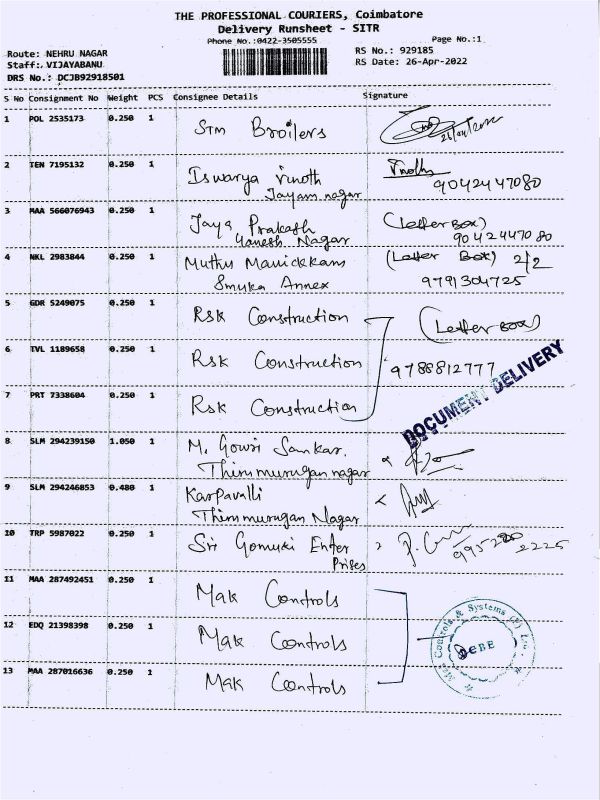 THE PROFESSIONAL COURIERS, Coimbatore
Delivery Runsheet - SITR
Phone No.:0422-3505555
Page No.:1
Route: NEHRU NAGAR
RS No.: 929185
Staff:. VIJAYABANU
RS Date: 26-Apr-2022
DRS No.: DCJB92918501
S No Consignment No Weight PCS Consignee Details Signature
1 POL 2535173 0.250 1 STM Broilers
2 TEN 7195132 0.250 1 Iswarya Vinoth Vinoth
Jayam nagar 9042447080
3 MAA 566076943 0.250 1 Jaya Prakash (Letter box)
Ganesh Nagar 9042447080
4 NKL 2983844 0.250 1 Muthu Manickkam (Letter Box) 2/2
Smuka Annex 9791304725
5 GDR 5249075 0.250 1 Rsk Construction (Letter box)
6 TVL 1189658 0.250 1 Rsk Construction 9788812777
7 PRT 7338604 0.250 1 Rsk Construction
DOCUMENT DELIVERY
8 SLM 294239150 1.050 1 M. Gowri Sankar.
Thirumurugan nagar
9 SLM 294246853 0.480 1 Karpavalli
Thirumurugan Nagar
10 TRP 5987022 0.250 1 Sri Gomuki Enter
Prises
11 MAA 287492451 0.250 1 Mak Controls
12 EDQ 21398398 0.250 1 Mak Controls
13 MAA 287016636 0.250 1 Mak Controls
Mak Controls & Systems (P) Ltd.
CBE